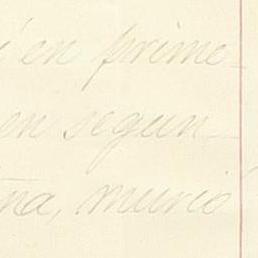 en prime-
en segun-
na, murió